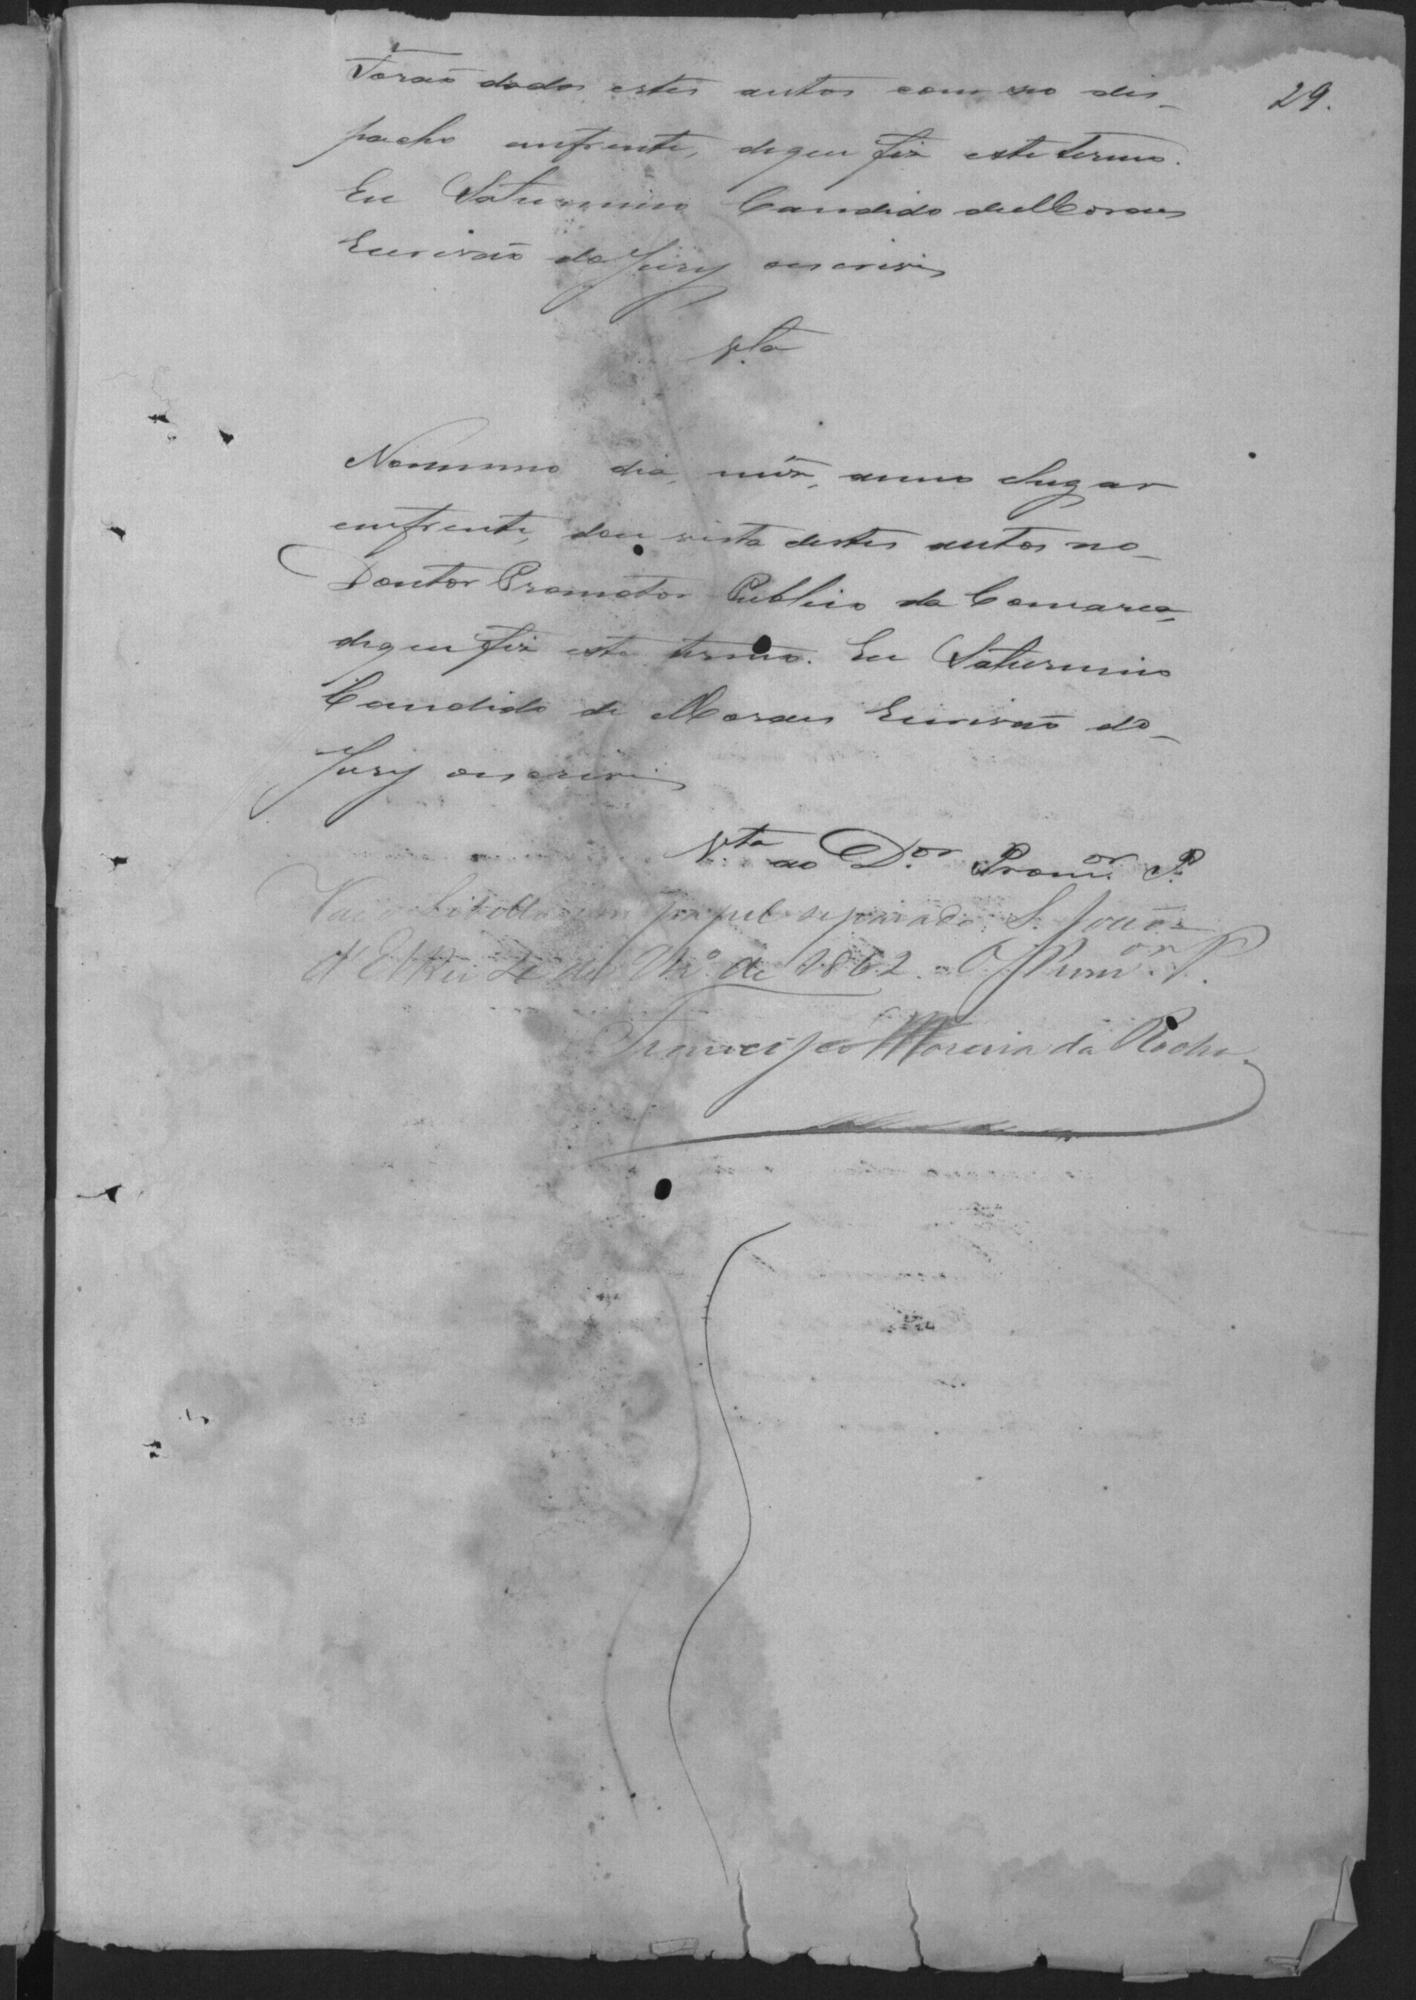 29.
forão dados estes autos com seo des-
pacho emfrente, de que fiz este termo.
Eu Saturnino Candido de Moraes
Escrivão do Jury escrevi
V.ta
No mesmo dia, mez, anno e lugar
emfrente, dou vista destes autos ao
Doutor Promotor Publico da Comarca,
de que fiz este termo. Eu Saturnino
Candido de Moraes Escrivão do
Jury escrevi
V.ta ao D.or Prom.or P.
Vai o libello em papel separado. S. João
d'El Rei de de 1862. O Prom.or P.
Francisco Moreira da Rocha